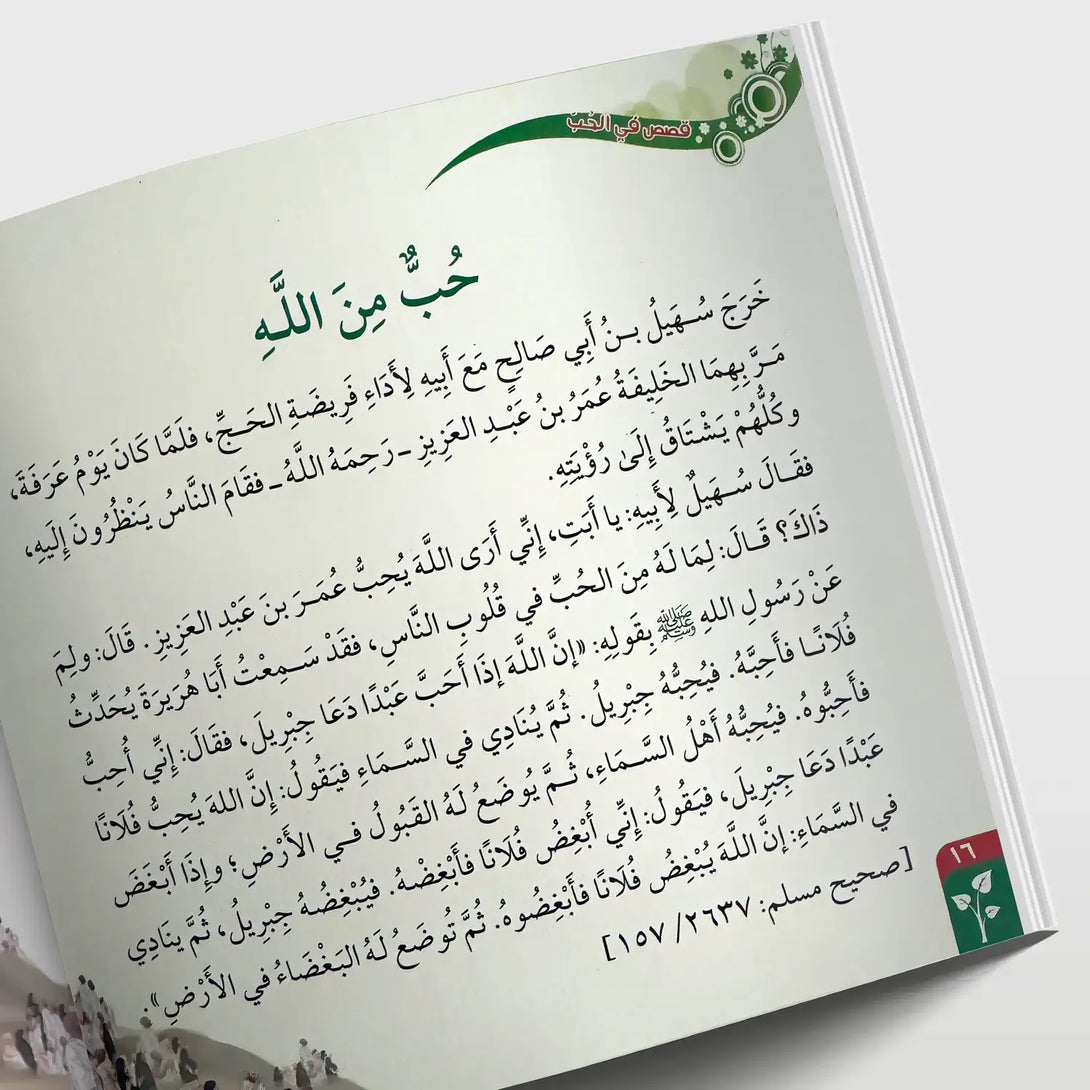 قصص في الحُبّ
حُبٌّ مِنَ اللَّهِ
خَرَجَ سُهَيلُ بنُ أَبِي صَالِحٍ مَعَ أَبِيهِ لِأَدَاءِ فَرِيضَةِ الحَجِّ، فلَمَّا كَانَ يَوْمُ عَرَفَةَ،
مَرَّ بِهِمَا الخَلِيفَةُ عُمَرُ بنُ عَبْدِ العَزِيزِ - رَحِمَهُ اللَّهُ - فقَامَ النَّاسُ يَنْظُرُونَ إِلَيهِ،
وكُلُّهُمْ يَشْتَاقُ إِلَىٰ رُؤْيَتِهِ.
فقَالَ سُهَيلٌ لِأَبِيهِ: يا أَبَتِ، إِنِّي أَرَى اللَّهَ يُحِبُّ عُمَرَ بنَ عَبْدِ العَزِيزِ. قَالَ: ولِمَ
ذَاكَ؟ قَالَ: لِمَا لَهُ مِنَ الحُبِّ في قُلُوبِ النَّاسِ، فقَدْ سَمِعْتُ أَبَا هُرَيرَةَ يُحَدِّثُ
عَنْ رَسُولِ اللهِ ﷺ بِقَولِهِ: «إنَّ اللَّهَ إذَا أَحَبَّ عَبْدًا دَعَا جِبْرِيلَ، فقَالَ: إنِّي أُحِبُّ
فُلَانًا فأَحِبَّهُ. فيُحِبُّهُ جِبْرِيلُ. ثُمَّ يُنَادِي في السَّمَاءِ فيَقُولُ: إنَّ اللهَ يُحِبُّ فُلَانًا
فأَحِبُّوهُ. فيُحِبُّهُ أَهْلُ السَّمَاءِ، ثُمَّ يُوضَعُ لَهُ القَبُولُ في الأَرْضِ؛ وإذَا أَبْغَضَ
عَبْدًا دَعَا جِبْرِيلَ، فيَقُولُ: إنِّي أُبْغِضُ فُلَانًا فأَبْغِضْهُ. فيُبْغِضُهُ جِبْرِيلُ، ثُمَّ ينَادِي
في السَّمَاءِ: إنَّ اللَّهَ يُبْغِضُ فُلَانًا فأَبْغِضُوهُ. ثُمَّ تُوضَعُ لَهُ البَغْضَاءُ في الأَرْضِ».
[صحيح مسلم: ٢٦٣٧/ ١٥٧]
١٦